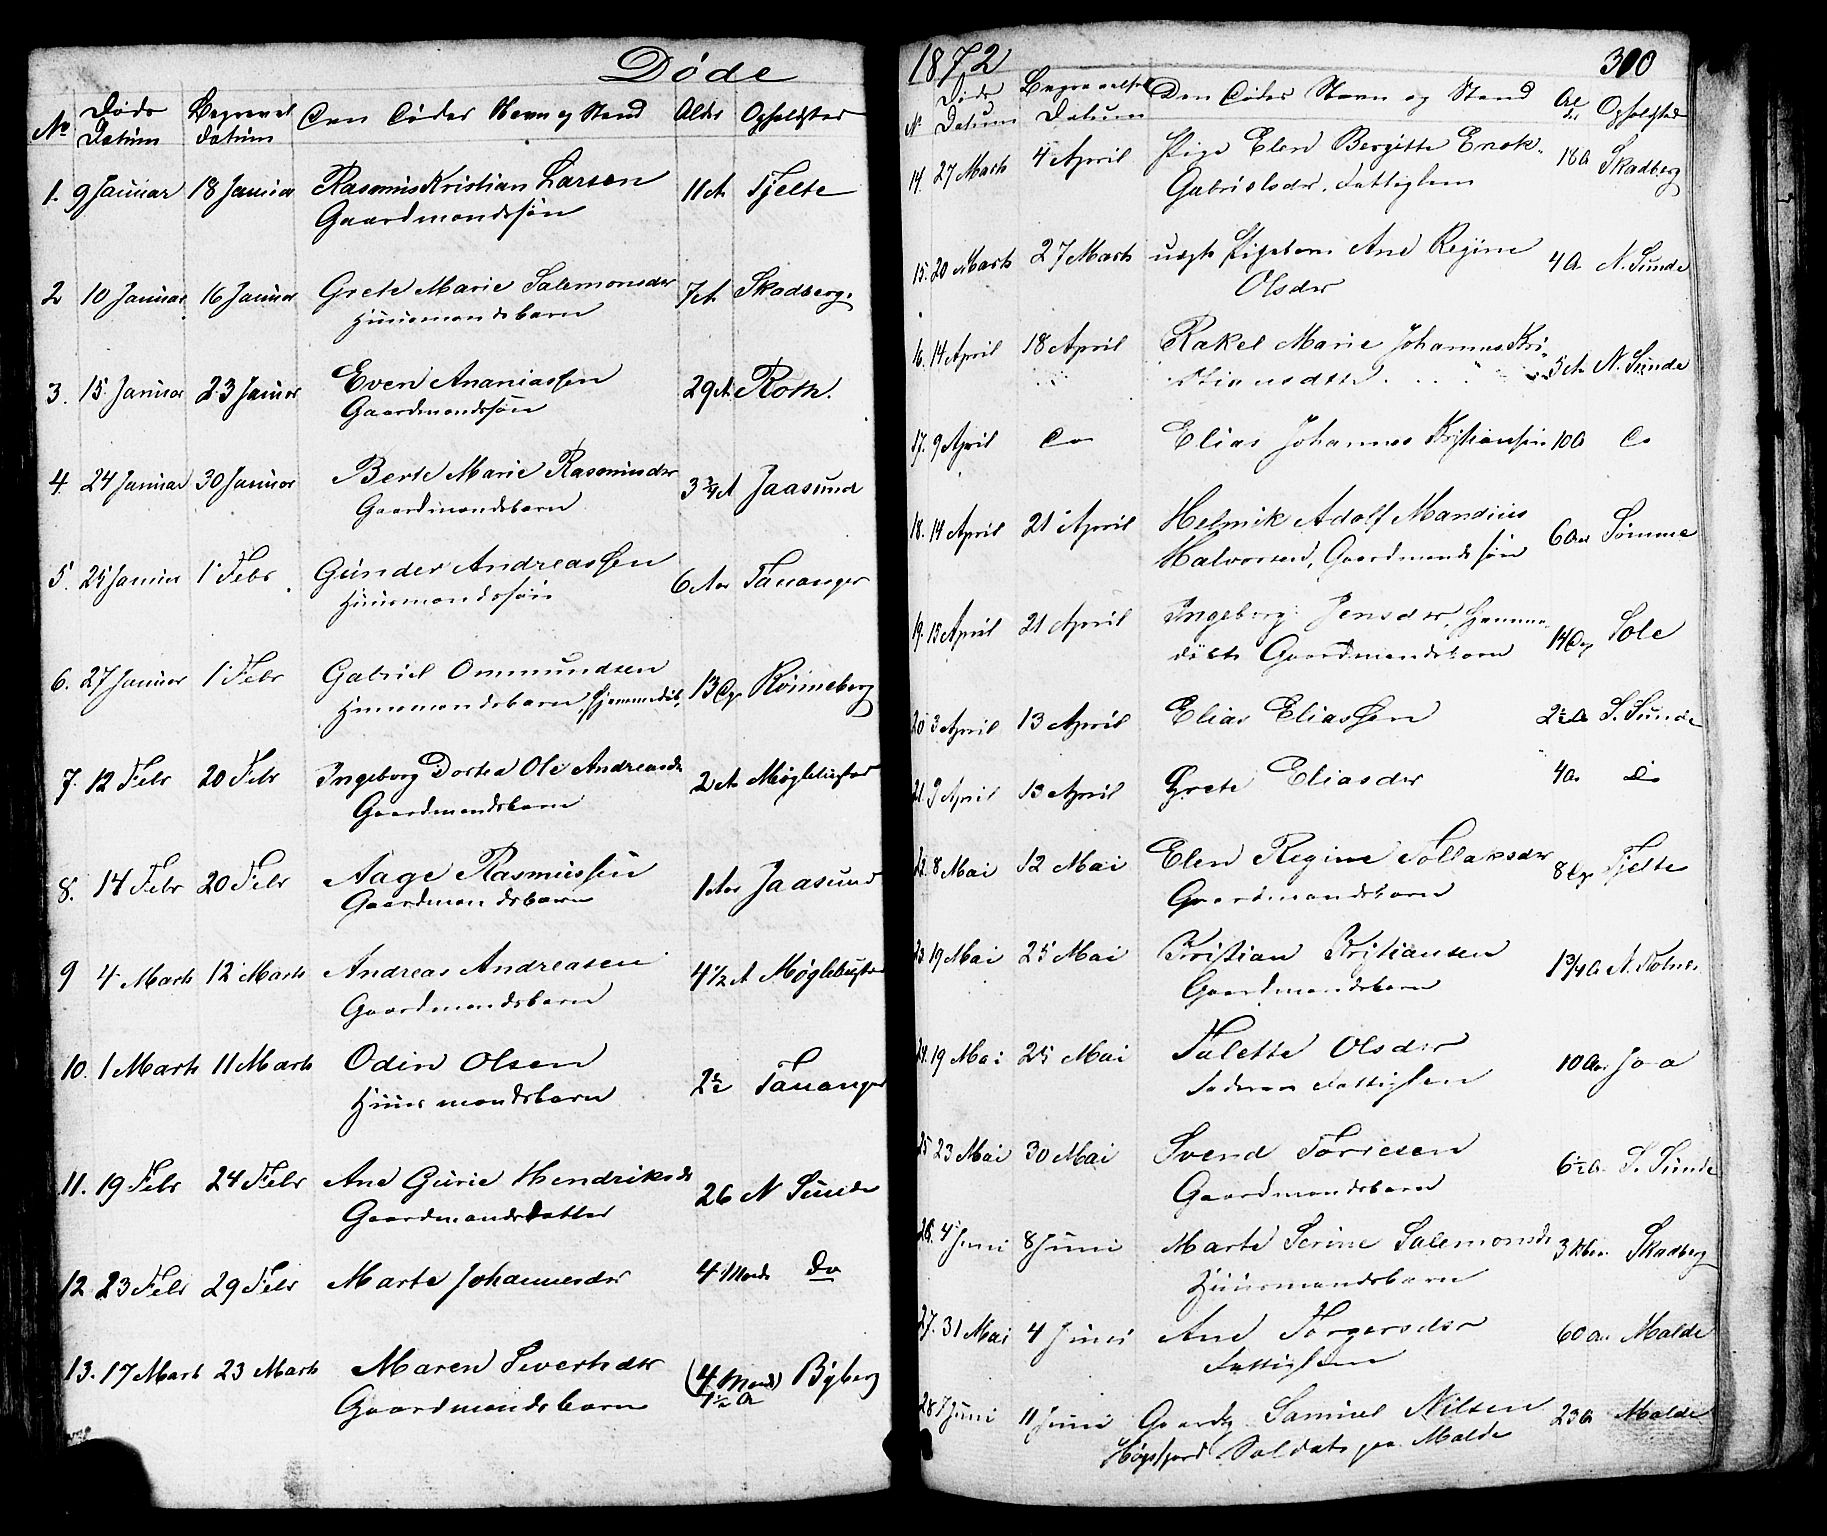 Døde
No Døds Datum Begravel datum Den Dødes Navn og Stand Alder Opholdsted
1. 9 Januar 18 Januar Rasmus Kristian Larsen 11 A Tjelte
Gaardmandssøn
2 10 Januar 16 Januar Grete Marie Salemonsdr 7 A Skadberg.
Huusmandsbarn
3. 15 Januar 23 Januar Even Ananiassen 29 A Roth.
Gaardmandssøn
4. 24 Januar 30 Januar Berte Marie Rasmusdr 3 3/4 A Jaasund
Gaardmandsbarn
5. 25 Januar 1 Febr Gunder Andreassen 6 Aar Tananger
Huusmandssøn
6. 27 Januar 1 Febr Gabriel Ommundsen 13 Dg Rønneberg
Huusmandsbarn, hjemmedøb.
7. 12 Febr 20 Febr Ingeborg Dortea Ole Andreasdr 2 A Møglebustad
Gaardmandsbarn
8. 14 Febr 20 Febr Aage Rasmussen 1 Aar Jaasund
Gaardmandsbarn
9 4 Marts 12 Marts Andreas Andreasen 4 1/2 A Møglebustad
Gaardmandsbarn
10. 1 Marts 11 Marts Odin Olsen 2 1/2 Tananger
Huusmandsbarn
11. 19 Febr 24 Febr Ane Gurie Hendriksdr 26 N Sunde
Gaardmandsdatter
12 23 Febr 29 Febr Marta Johannesdr 4 Mand Do
13. 17 Marts 23 Marts Maren Sivertsdr (4 Mand) Byberg
Gaardmandsbarn 1 1/2 A
1872 300
No Døds Datum Begravelses Datum Den Dødes Navn og Stand Alder Opholdsted
14. 27 Marts 4 April Pige Elen Bergitte Enok- 18 A Skadberg
Gabrielsdr, Fattiglem
15. 20 Marts 27 Marts uægte Pigebarn Ane Regine 4 A N. Sunde
Olsdr
16. 14 April 18 April Rakel Marie Johannes Kri- 5 A N. Sunde
stiansdtr
17. 9 April Do Elias Johannes Kristiansen 10 A Do
18. 14 April 21 April Helmik Adolf Mandius 6 Aar Sømme
Halvorsen, Gaardmandssøn
19. 15 April 21 April Ingeborg Jensdr, hjemme- 14 Dg Sole
døbt Gaardmandsbarn
20 3 April 13 April Elias Eliassen 2 1/2 A S. Sunde
21. 9 April 13 April Grete Eliasdr 4 A Do
22. 8 Mai 12 Mai Elen Regine Tollaksdr 8 Dg Tjelte
Gaardmandsbarn
23 19 Mai 25 Mai Kristian Kristiansen 1 3/4 A N. Kolnes
Gaardmandsbarn
24. 19 Mai 25 Mai Talette Olsdr 10 Aar Joa
Fattiglem
25 23 Mai 30 Mai Svend Torresen 6 1/2 A. S. Sunde
Gaardmandsbarn
26. 4 Juni 8 Juni Marte Serine Salemonsdr 3 Skadberg
Huusmandsbarn
27. 31 Mai 4 Juni Ane Torgersdr 60 A. Malde
Fattiglem
28 7 Juni 11 Juni Gaardg. Samuel Nilsen 23 A Malde
Høgsfjord. Soldat paa Malde